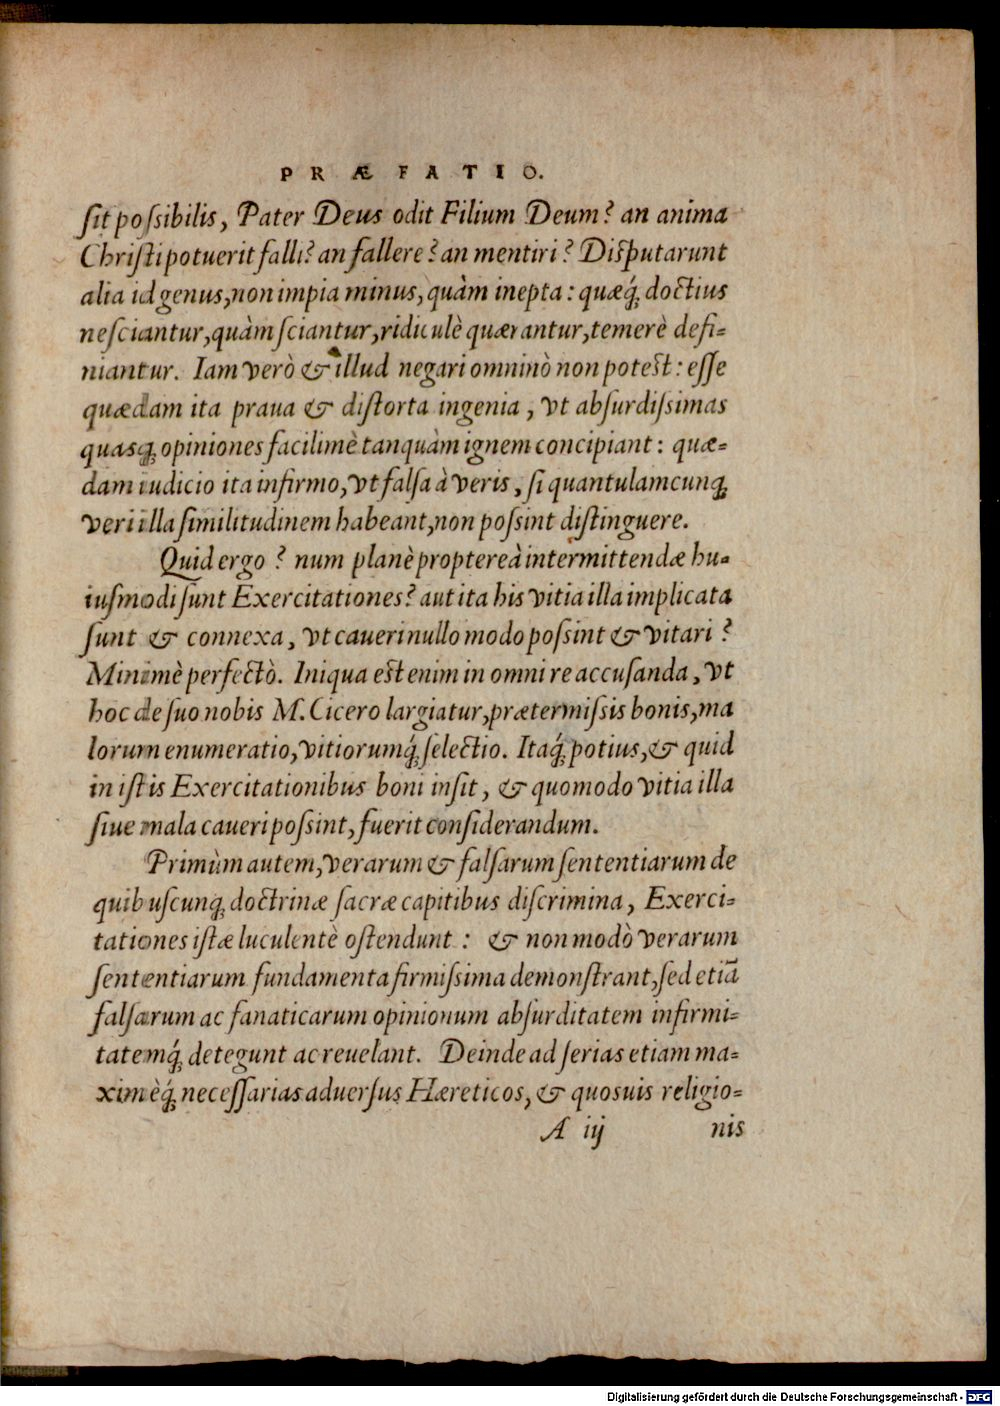 PRÆFATIO.
ſit poſsibilis, Pater Deus odit Filium Deum? an anima
Chriſti potuerit falli? an fallere? an mentiri? Diſputarunt
alia id genus, non impia minus, quàm inepta: quæq́; doctius
neſciantur, quàm ſciantur, ridiculè quærantur, temerè defi-
niantur. Iam verò & illud negari omninò non poteſt: eſſe
quædam ita praua & diſtorta ingenia, vt abſurdiſsimas
quasq; opiniones facilimè tanquàm ignem concipiant: quæ-
dam iudicio ita infirmo, vt falſa à veris, ſi quantulamcunq;
veri illa ſimilitudinem habeant, non poſsint diſtinguere.
Quid ergo? num planè proptereà intermittendæ hu-
iuſmodi ſunt Exercitationes? aut ita his vitia illa implicata
ſunt & connexa, vt caueri nullo modo poſsint & vitari?
Minimè perfectò. Iniqua eſt enim in omni re accuſanda, vt
hoc de ſuo nobis M. Cicero largiatur, prætermiſsis bonis, ma
lorum enumeratio, vitiorumq́; ſelectio. Itaq́; potius, & quid
in iſtis Exercitationibus boni inſit, & quomodo vitia illa
ſiue mala caueri poſsint, fuerit conſiderandum.
Primùm autem, verarum & falſarum ſententiarum de
quibuſcunq; doctrinæ ſacræ capitibus diſcrimina, Exerci-
tationes iſtæ luculentè oſtendunt: & non modò verarum
ſententiarum fundamenta firmiſsima demonſtrant, ſed etiã
falſarum ac fanaticarum opinionum abſurditatem infirmi-
tatemq́; detegunt ac reuelant. Deinde ad ſerias etiam ma-
ximèq́; neceſſarias aduerſus Hæreticos, & quosuis religio-
A iij nis
Digitalisierung gefördert durch die Deutsche Forschungsgemeinschaft - DFG